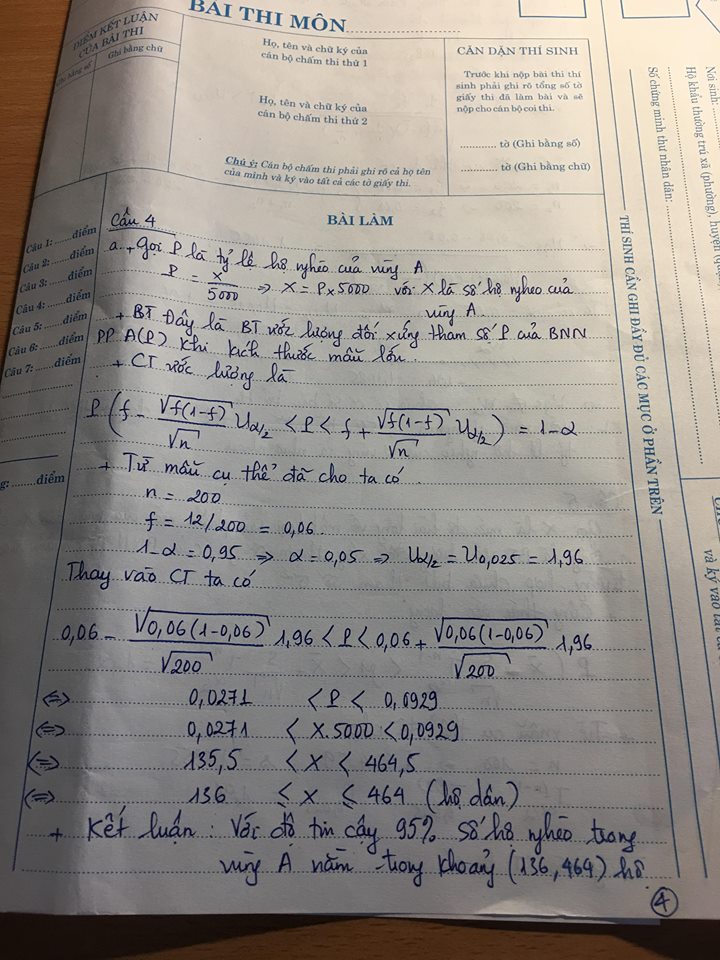 BÀI THI MÔN
ĐIỂM KẾT LUẬN
CỦA BÀI THI
Ghi bằng số
Ghi bằng chữ
Họ, tên và chữ ký của
cán bộ chấm thi thứ 1
Họ, tên và chữ ký của
cán bộ chấm thi thứ 2
Chú ý: Cán bộ chấm thi phải ghi rõ cả họ tên
của mình và ký vào tất cả các tờ giấy thi.
CĂN DẶN THÍ SINH
Trước khi nộp bài thi thí
sinh phải ghi rõ tổng số tờ
giấy thi đã làm bài và sẽ
nộp cho cán bộ coi thi.
............ tờ (Ghi bằng số)
............ tờ (Ghi bằng chữ)
Nơi sinh:
Hộ khẩu thường trú xã (phường), huyện
Số chứng minh thư nhân dân:
THÍ SINH CẦN GHI ĐẦY ĐỦ CÁC MỤC Ở PHẦN TRÊN
và ký vào tất cả
BÀI LÀM
Câu 1: ......điểm
Câu 2: ......điểm
Câu 3: ......điểm
Câu 4: ......điểm
Câu 5: ......điểm
Câu 6: ......điểm
Câu 7: ......điểm
g: ........điểm
Câu 4
a. + Gọi P là tỷ lệ hộ nghèo của vùng A
P = X/5000 => X = P x 5000 với X là số hộ nghèo của
vùng A.
+ BT Đây là BT ước lượng đối xứng tham số P của BNN
PP A(P) khi kích thước mẫu lớn
+ CT ước lượng là
P (f - √f(1-f)/√n Uα/2 < P < f + √f(1-f)/√n Uα/2) = 1-α
+ Từ mẫu cụ thể đã cho ta có.
n = 200
f = 12/200 = 0,06.
1-α = 0,95 => α = 0,05 => Uα/2 = U0,025 = 1,96
Thay vào CT ta có
0,06 - √0,06(1-0,06)/√200 1,96 < P < 0,06 + √0,06(1-0,06)/√200 1,96
<=> 0,0271 < P < 0,0929
<=> 0,0271 < X.5000 < 0,0929
<=> 135,5 < X < 464,5
<=> 136 ≤ X ≤ 464 (hộ dân)
+ Kết luận: Với độ tin cậy 95% số hộ nghèo trong
vùng A nằm trong khoảng (136, 464) hộ
4